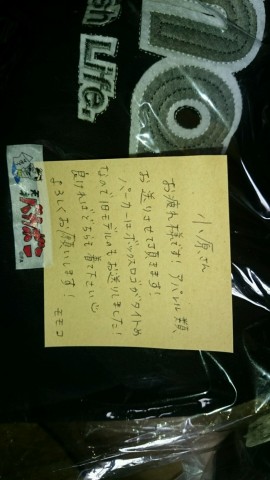 sh Life.
小原さん
お疲れ様です！アパレル類、
お送りさせて頂きます！
パーカーはボックスロゴがタイトめ
なので旧モデルのもお送りしました！
良ければどちらも着て下さい
よろしくお願いします！